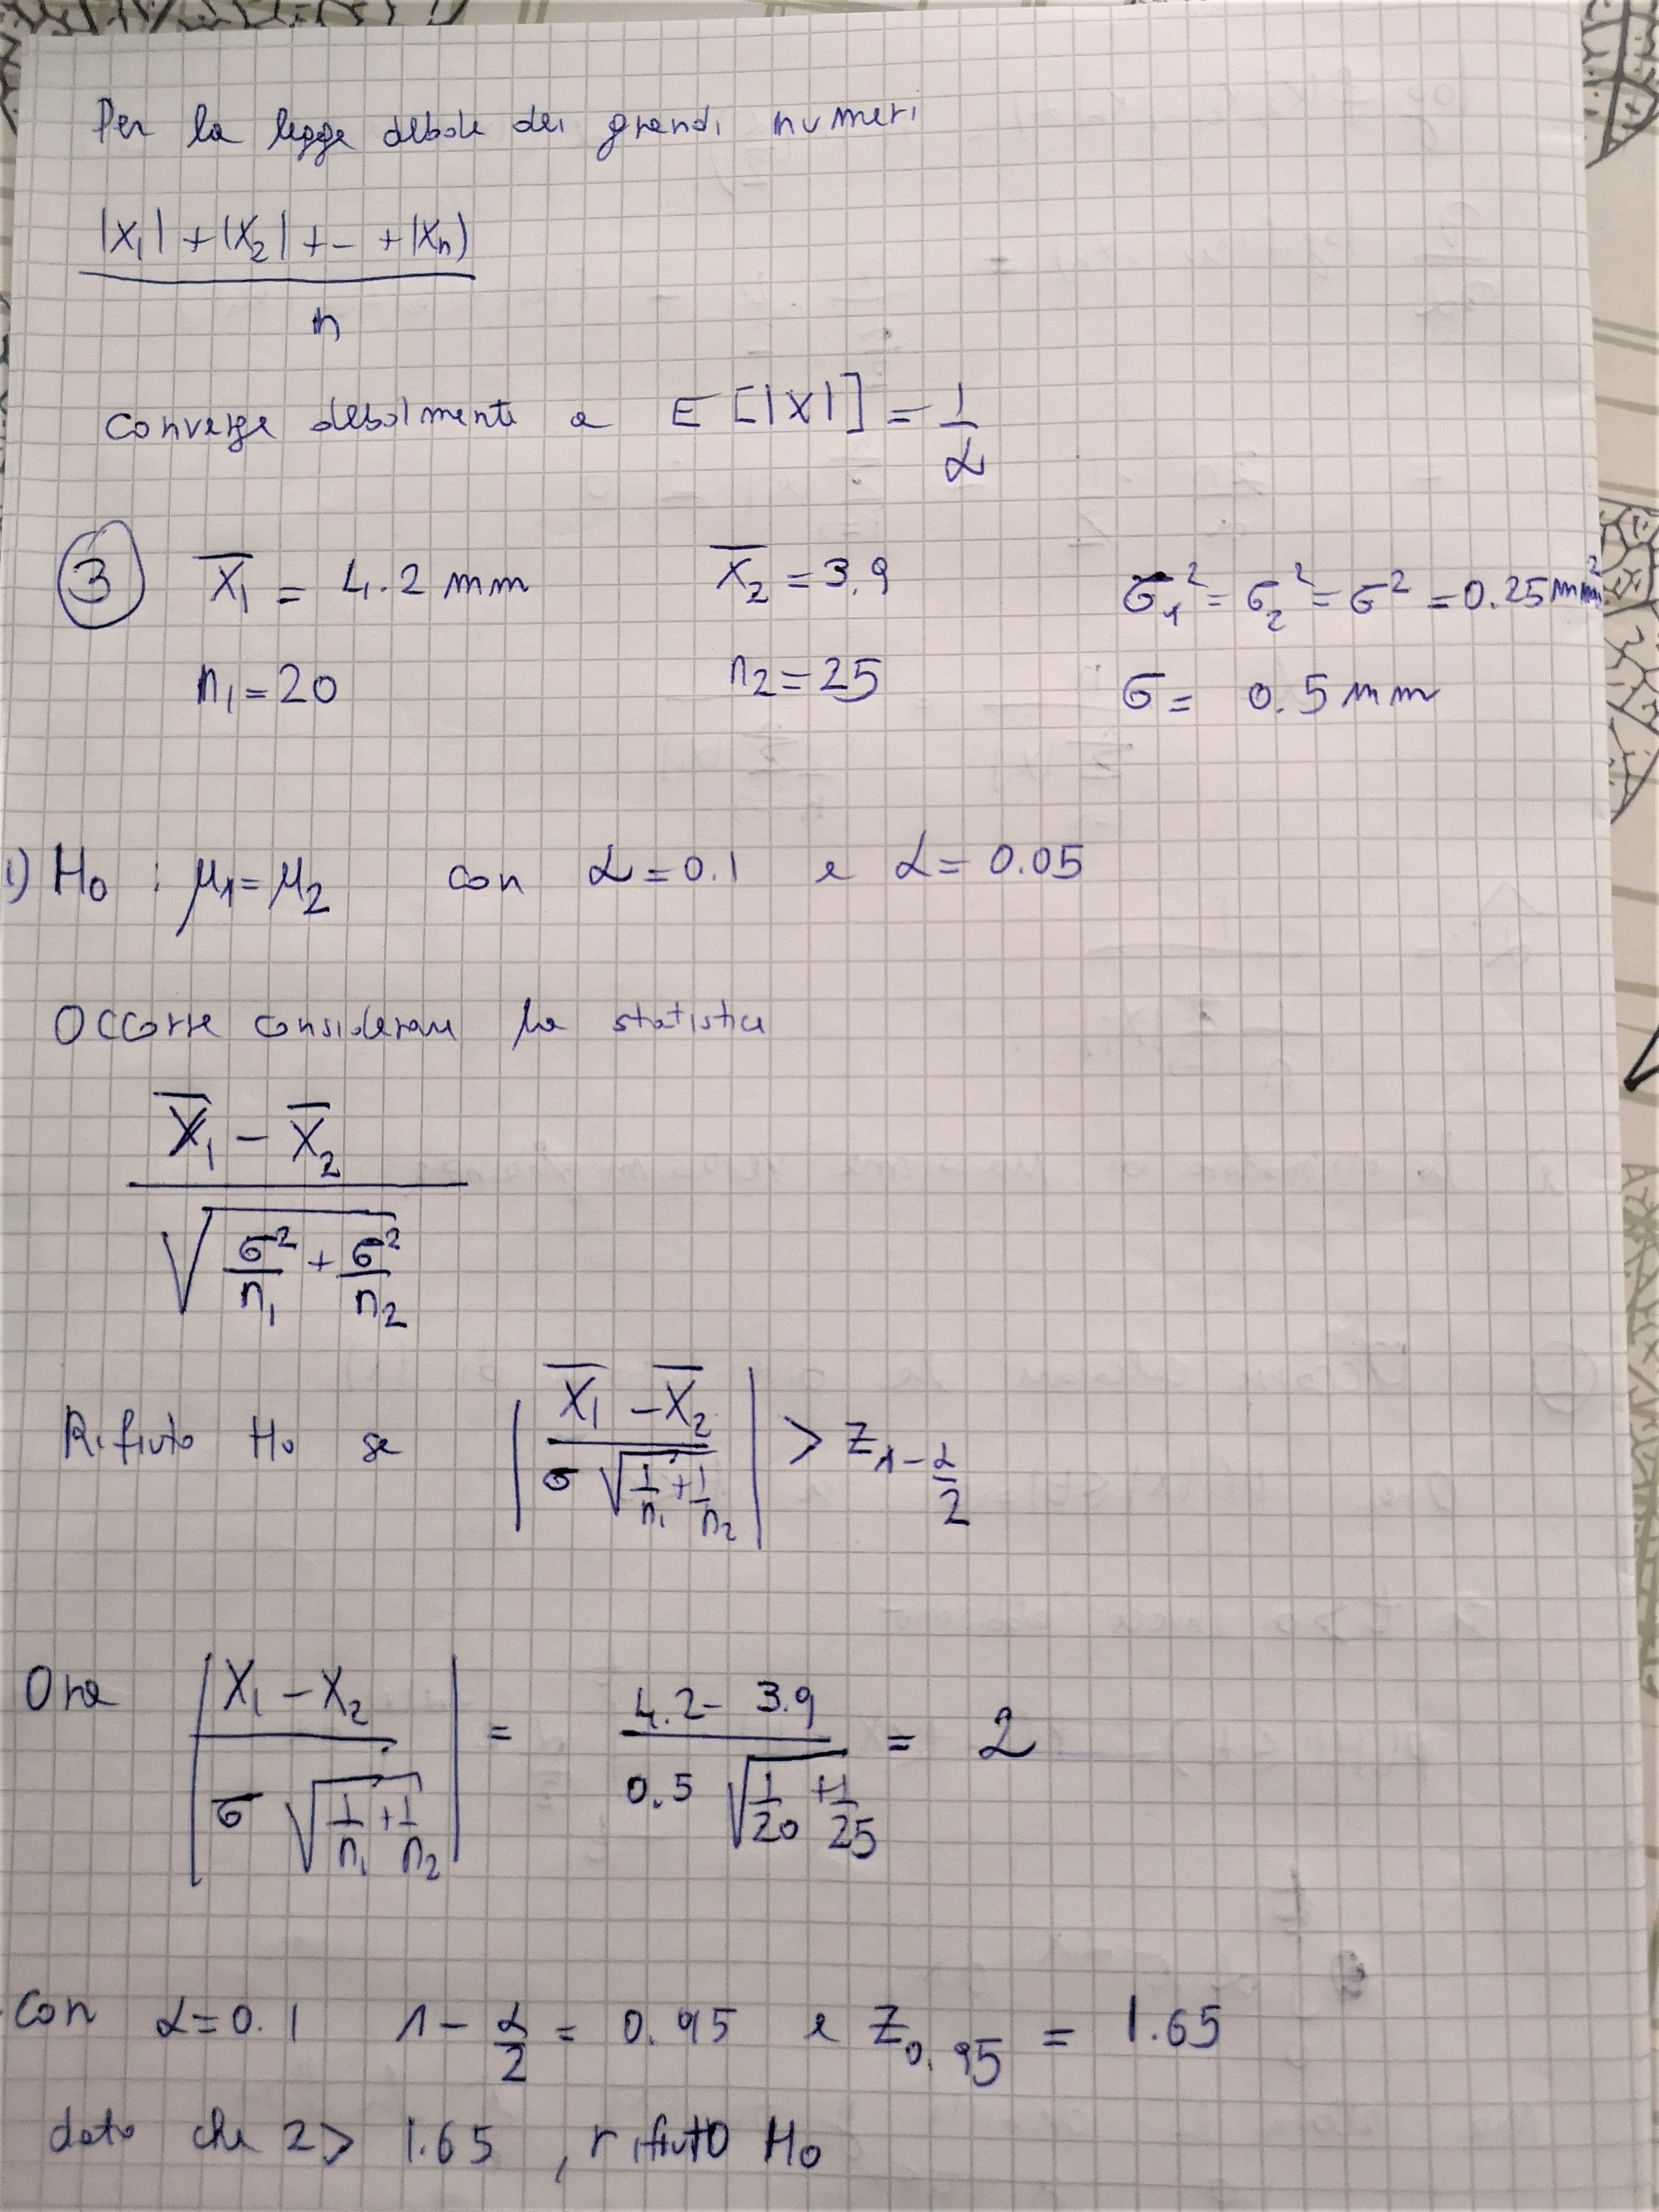 Per la legge debole dei grandi numeri
|X₁| + |X₂| + - + |Xₙ)
n
converge debolmente a E [|X|] = 1/α
③ X̄₁ = 4.2 mm X̄₂ = 3.9 σ₁² = σ₂² = σ² = 0.25 mm²
n₁ = 20 n₂ = 25 σ = 0.5 mm
1) H₀ : μ₁ = μ₂ con α = 0.1 e α = 0.05
Occorre considerare la statistica
X̄₁ - X̄₂
√(σ²/n₁ + σ²/n₂)
Rifiuto H₀ se | (X̄₁ - X̄₂) / (σ √(1/n₁ + 1/n₂)) | > z₁₋α/2
Ora | (X₁ - X₂) / (σ √(1/n₁ + 1/n₂)) | = (4.2 - 3.9) / (0.5 √(1/20 + 1/25)) = 2
con α = 0.1 1 - α/2 = 0.95 e z₀.₉₅ = 1.65
dato che 2 > 1.65 , rifiuto H₀